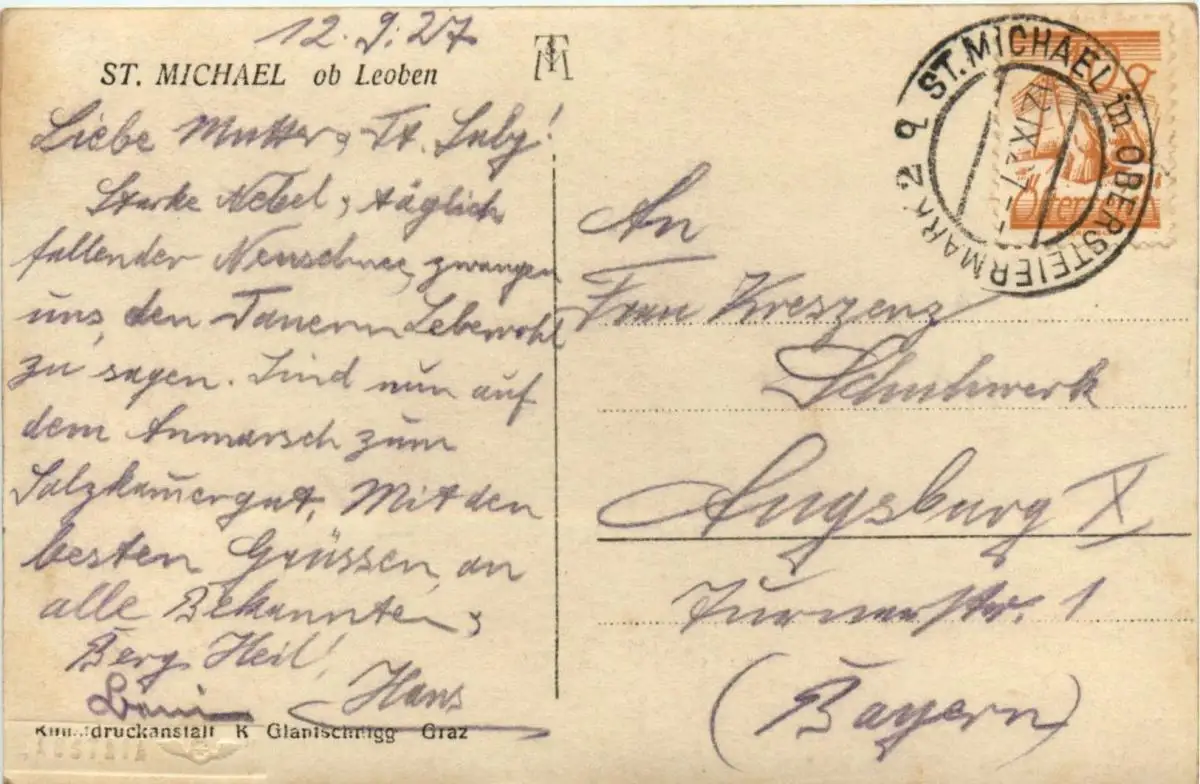 12.9.27
ST. MICHAEL ob Leoben
Liebe Mutter, Tt.
Starke Nebel, täglich
fallender Neuschnee, zwangen
uns, den Tauern Lebewohl
zu sagen. Sind nun auf
dem Anmarsch zum
Salzkammergut. Mit den
besten Grüssen, an
alle Bekannten,
Berg Heil!
Hans
Kunstdruckanstalt K Glantschnigg Graz
ST. MICHAEL in OBERSTEIERMARK 2 a
12 IX 27
Österreich
An
Frau Kreszenz
Schuhwerk
Augsburg X
Turnerstr. 1
(Bayern)